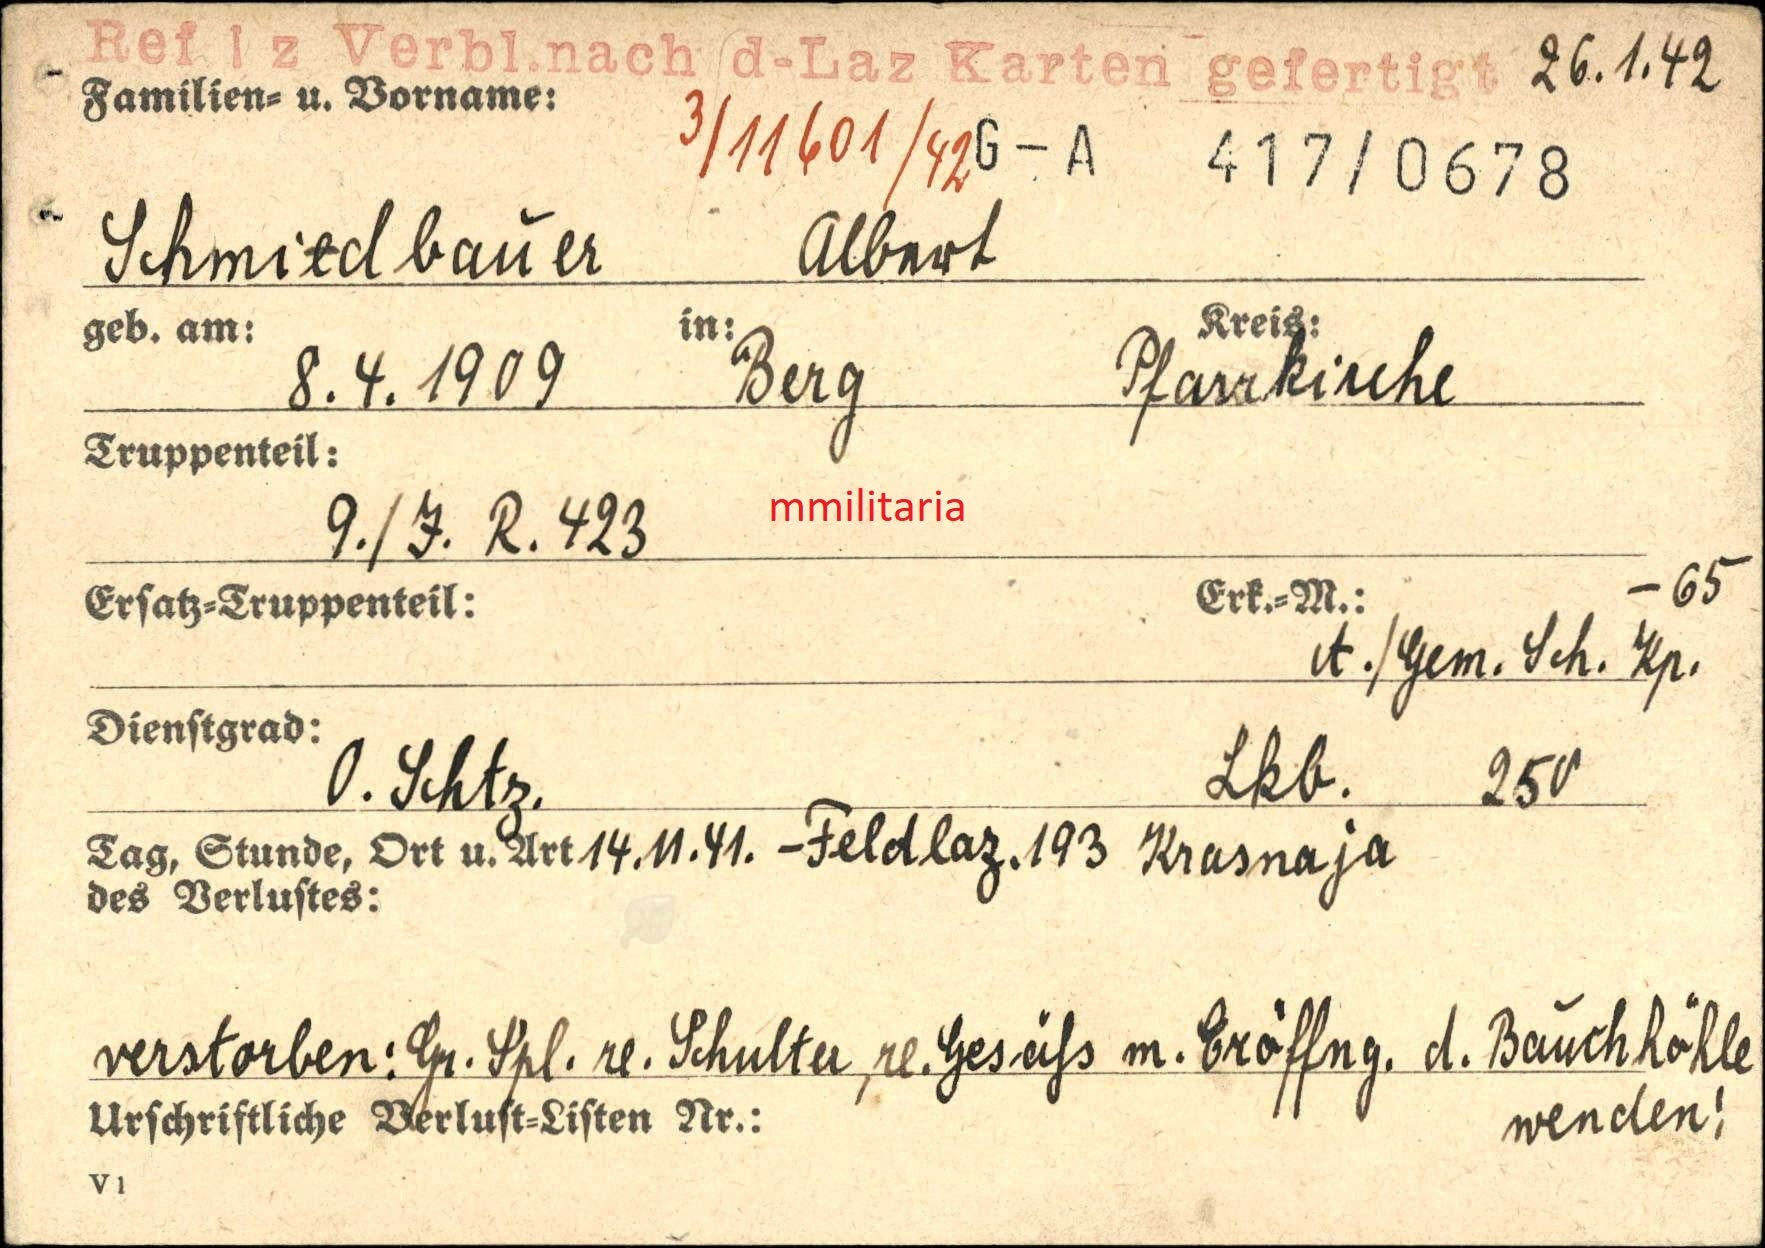 Ref I z Verbl.nach d-Laz Karten gefertigt 26.1.42
Familien- u. Vorname:
3/11601/42 G-A 417/0678
Schmidbauer Albert
geb. am: in: Kreis:
8.4.1909 Berg Pfarrkirche
Truppenteil:
9./J. R. 423
mmilitaria
Ersatz-Truppenteil: Erk.-M.: -65
A./Gem. Sch. Kp.
Dienstgrad:
O. Schtz. Lkb. 250
Tag, Stunde, Ort u. Art 14.11.41. -Feldlaz. 193 Krasnaja
des Verlustes:
verstorben: Gr. Spl. re. Schulter, re. Gesäß m. Eröffng. d. Bauchhöhle
Urschriftliche Verlust-Listen Nr.: wenden!
V 1